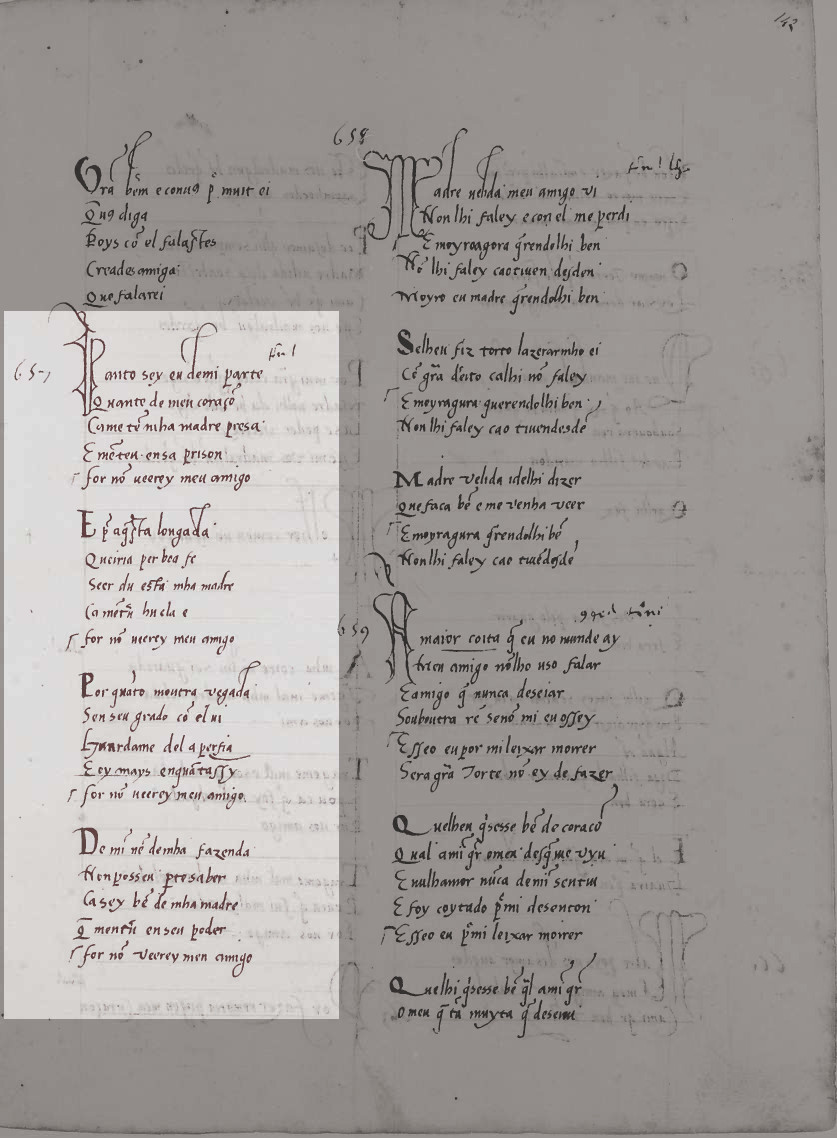 142
Ora bem e conuꝯ p̃ muit ei
Q̃uꝯ diga
Poys cõ el falastes
Creades amiga
Que falarei
657
Quanto sey eu demi parte
Quanto de meu coraçõ
Came tẽ mha madre presa
E mẽteu ensa prison
for nõ ueerey meu amigo
E p̃ aq̃sta longada
Queiria per boa fe
Seer du esta mha madre
Ca mentr̃ hu ela e
for nõ ueerey meu amigo
Por quãto moutra vegada
Sen seu grado cõ el ui
Guardame del a perfia
Eoy mays enquãtassy
for nõ ueerey meu amigo
De mi nẽ demha fazenda
Non posseu p̱te saber
Ca sey bẽ de mha madre
Q̃ mentr̃ en seu poder
for nõ veerey meu amigo
658
Madre uelida meu amigo vi
Non lhi faley e con el me perdi
E moyroagora q̃rendolhi ben
Nõ lhi faley caotiuen desden
Moyro eu madre q̃rendolhi ben
Selheu fiz torto lazerarmho ei
Cõ gr̃a dẽito calhi nõ faley
E moyragura querendolhi ben
Non lhi faley cao tiuendesdẽ
Madre velida idelhi dizer
Que faca bẽ e me venha veer
E moyragura q̃rendolhi bẽ
Non lhi faley cao tiuẽdesdẽ
659
A maior coita q̃ eu no munde ay
Meu amigo nõlho uso falar
E amigo q̃ nunca deseiar
Souboutra rẽ senõ mi eu ossey
Esseo eu por mi leixar morrer
Sera gr̃a torte nõ ey de fazer
Quelheu q̃sesse bẽ de coraçõ
Qual ami q̃r omeu desq̃me vyu
E nulhamor nũca demi sentiu
E foy coytado p̃ mi desenton
Esseo eu p̃ mi leixar morrer
Quelhi q̃sesse bẽ q̃l ami q̃r
O meu q̃ tã muyta q̃ deseiou